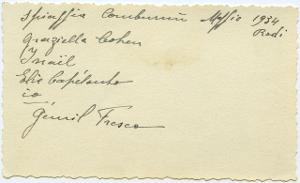 Spiaggia Comburnù Maggio 1934
Rodi
Graziella Cohen
y
Israël
Elie Capélouto
io
Gemil Fresco